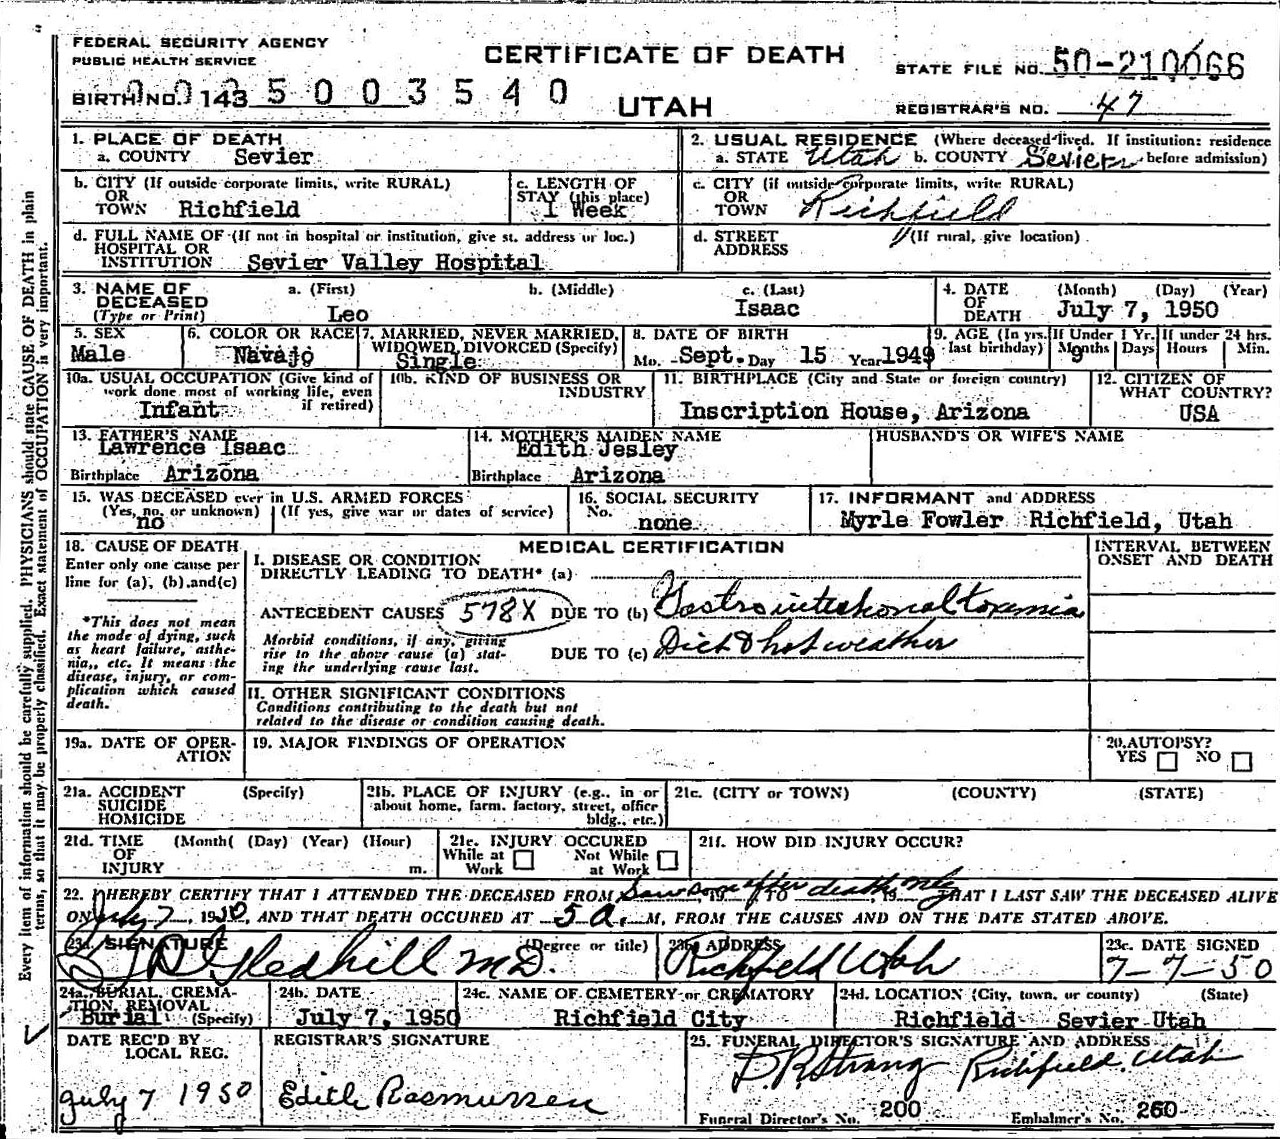 FEDERAL SECURITY AGENCY
PUBLIC HEALTH SERVICE
CERTIFICATE OF DEATH
UTAH
STATE FILE NO. 50-210066
BIRTH NO. 143
5003540
REGISTRAR'S NO. 47
1. PLACE OF DEATH
a. COUNTY Sevier
2. USUAL RESIDENCE (Where deceased lived. If institution: residence
a. STATE Utah b. COUNTY Sevier before admission)
b. CITY (If outside corporate limits, write RURAL)
OR
TOWN Richfield
c. LENGTH OF
STAY (this place)
1 Week
c. CITY (if outside corporate limits, write RURAL)
OR
TOWN Richfield
d. FULL NAME OF (If not in hospital or institution, give st. address or loc.)
HOSPITAL OR
INSTITUTION Sevier Valley Hospital
d. STREET (If rural, give location)
ADDRESS
3. NAME OF DECEASED (Type or Print)
a. (First) b. (Middle) c. (Last)
Leo Isaac
4. DATE OF DEATH (Month) (Day) (Year)
July 7, 1950
5. SEX
Male
6. COLOR OR RACE
Navajo
7. MARRIED, NEVER MARRIED,
WIDOWED, DIVORCED (Specify)
Single
8. DATE OF BIRTH
Mo. Sept. Day 15 Year 1949
9. AGE (In yrs. last birthday)
If Under 1 Yr. Months Days
9
If under 24 hrs. Hours Min.
10a. USUAL OCCUPATION (Give kind of
work done most of working life, even
if retired)
Infant
10b. KIND OF BUSINESS OR
INDUSTRY
11. BIRTHPLACE (City and State or foreign country)
Inscription House, Arizona
12. CITIZEN OF
WHAT COUNTRY?
USA
13. FATHER'S NAME
Lawrence Isaac
Birthplace Arizona
14. MOTHER'S MAIDEN NAME
Edith Jesley
Birthplace Arizona
HUSBAND'S OR WIFE'S NAME
15. WAS DECEASED ever in U.S. ARMED FORCES
(Yes, no, or unknown) (If yes, give war or dates of service)
no
16. SOCIAL SECURITY
No.
none
17. INFORMANT and ADDRESS
Myrle Fowler Richfield, Utah
18. CAUSE OF DEATH
Enter only one cause per
line for (a), (b), and (c)
*This does not mean
the mode of dying, such
as heart failure, asthe-
nia,, etc. It means the
disease, injury, or com-
plication which caused
death.
MEDICAL CERTIFICATION
I. DISEASE OR CONDITION
DIRECTLY LEADING TO DEATH* (a)
ANTECEDENT CAUSES 578X DUE TO (b) Gastrointestional toxemia
Morbid conditions, if any, giving
rise to the above cause (a) stat-
ing the underlying cause last.
DUE TO (c) Diet & hot weather
II. OTHER SIGNIFICANT CONDITIONS
Conditions contributing to the death but not
related to the disease or condition causing death.
INTERVAL BETWEEN
ONSET AND DEATH
19a. DATE OF OPER-
ATION
19. MAJOR FINDINGS OF OPERATION
20. AUTOPSY?
YES NO
21a. ACCIDENT (Specify)
SUICIDE
HOMICIDE
21b. PLACE OF INJURY (e.g., in or
about home, farm, factory, street, office
bldg., etc.)
21c. (CITY or TOWN) (COUNTY) (STATE)
21d. TIME (Month( (Day) (Year) (Hour)
OF
INJURY m.
21e. INJURY OCCURED
While at Work Not While at Work
21f. HOW DID INJURY OCCUR?
22. I HEREBY CERTIFY THAT I ATTENDED THE DECEASED FROM Saw soon after death only, 19 TO , 19 THAT I LAST SAW THE DECEASED ALIVE
ON July 7, 1950, AND THAT DEATH OCCURED AT 5 a. M, FROM THE CAUSES AND ON THE DATE STATED ABOVE.
23a. SIGNATURE (Degree or title)
Gledhill M.D.
23b. ADDRESS
Richfield Utah
23c. DATE SIGNED
7-7-50
24a. BURIAL, CREMA-
TION REMOVAL
Burial (Specify)
24b. DATE
July 7, 1950
24c. NAME OF CEMETERY or CREMATORY
Richfield City
24d. LOCATION (City, town, or county) (State)
Richfield Sevier Utah
DATE REC'D BY
LOCAL REG.
July 7 1950
REGISTRAR'S SIGNATURE
Edith Rasmussen
25. FUNERAL DIRECTOR'S SIGNATURE AND ADDRESS
Strang Richfield, Utah
Funeral Director's No. 200 Embalmer's No. 260
Every item of information should be carefully supplied. PHYSICIANS should state CAUSE OF DEATH in plain
terms, so that it may be properly classified. Exact statement of OCCUPATION is very important.